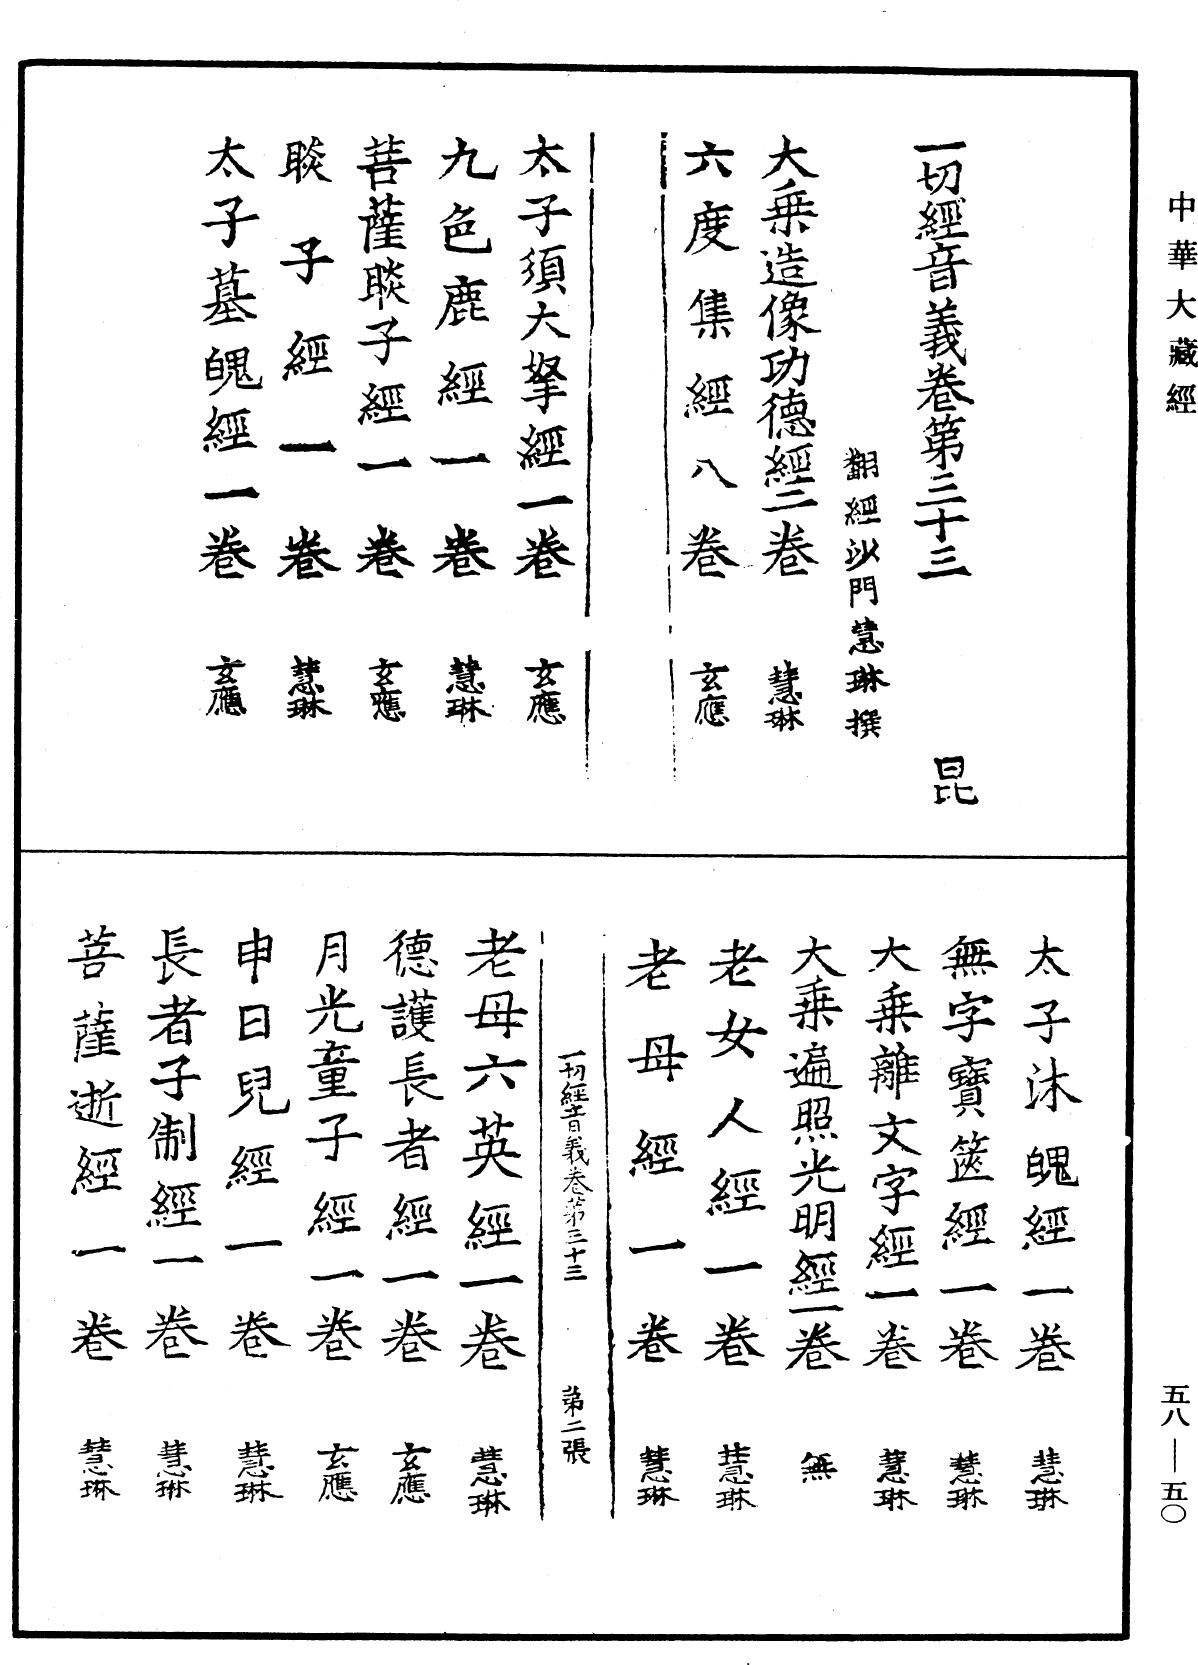 中華大藏經
一切經音義卷第三十三 昆
翻經沙門慧琳撰
大乗造像功德經二卷 慧琳
六度集經八卷 玄應
太子須大拏經一卷 玄應
九色鹿經一卷 慧琳
菩薩睒子經一卷 玄應
睒子經一卷 慧琳
太子墓魄經一卷 玄應
太子沐魄經一卷 慧琳
無字寶篋經一卷 慧琳
大乗離文字經一卷 慧琳
大乗遍照光明經一卷 無
老女人經一卷 慧琳
老母經一卷 慧琳
一切經音義卷第三十三 第二張
老母六英經一卷 慧琳
德護長者經一卷 玄應
月光童子經一卷 玄應
申日兒經一卷 慧琳
長者子制經一卷 慧琳
菩薩逝經一卷 慧琳
五八—五〇